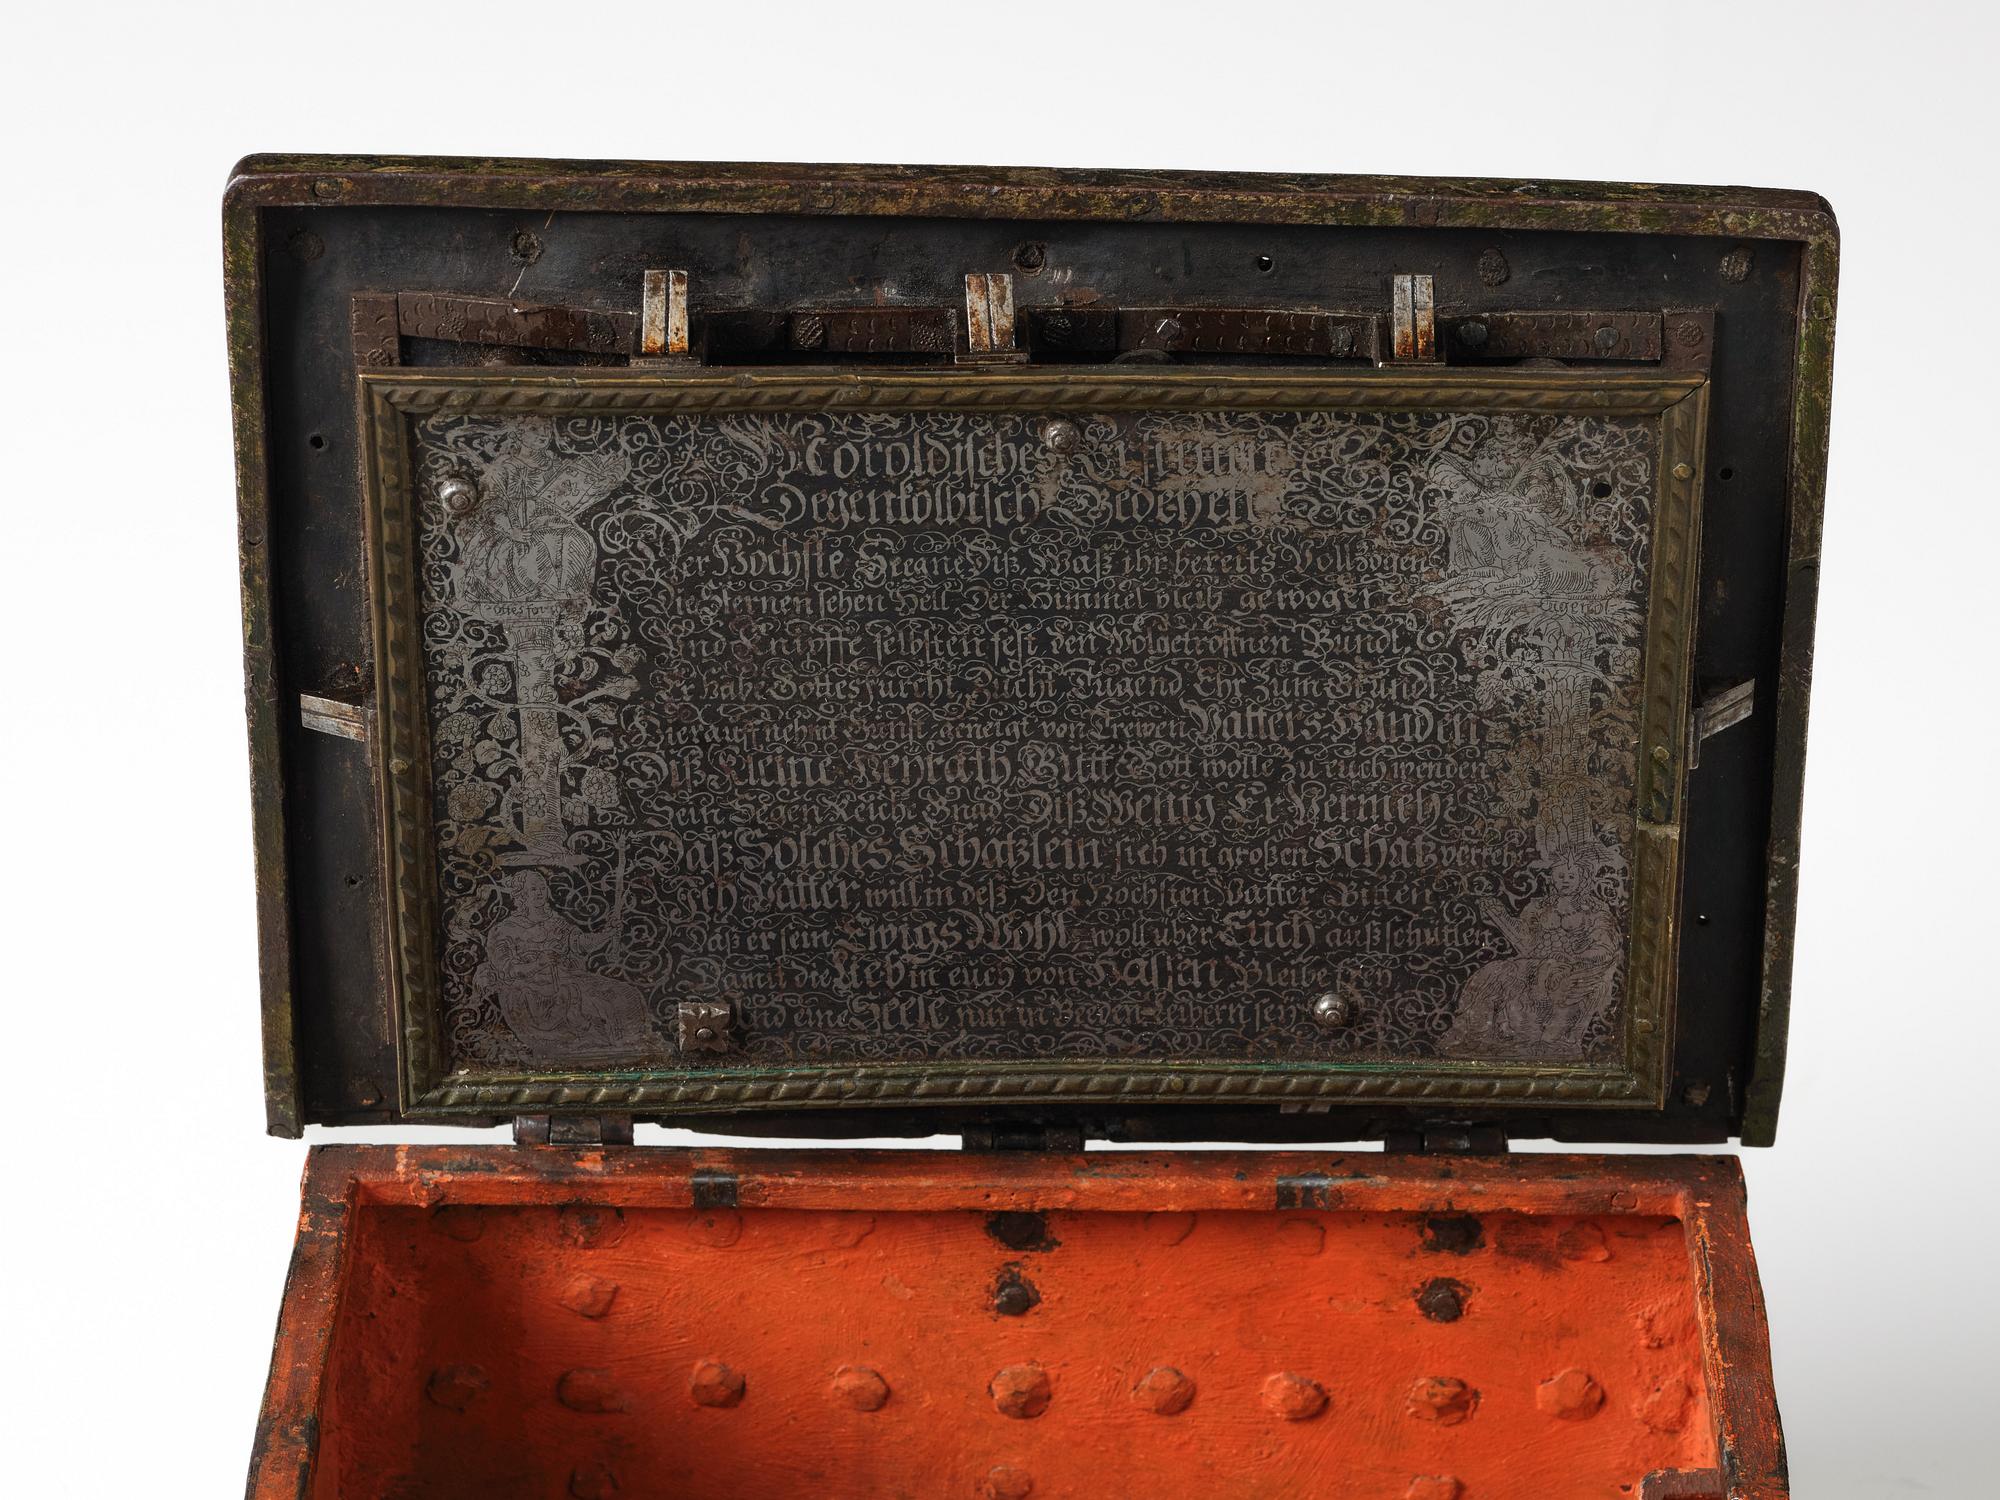 Noroldisches
Degenkolbisch Gedeyen
Der Höchste Seegne diß, Waß ihr bereits Vollzogen
Die Sternen sehen Heil, Der Himmel bleib gewogen
Und Knipffe selbsten fest den Wolgetroffnen Bundt,
Er habe Gottesfurcht, Zucht, Tugend, Ehr zum Grundt
Hierauff nehmt Gunst geneigt von Trewen Vatters Handen
Diß Kleine Heÿrath Gutt Gott wolle zu euch wenden
Sein Segen Reiche Gnad Diß Wenig Er Vermehr
Daß Solches Schätzlein sich in großen Schatz verkehr
Ich Vatter, will in deß Den Höchsten Vatter Bitten
Daß er sein Ewigs Wohl woll über Euch außschütten
Damit die Lieb in euch von Hassen Bleibe
Und eine Seele nur in Beeden Leibern seÿ
Tugendt